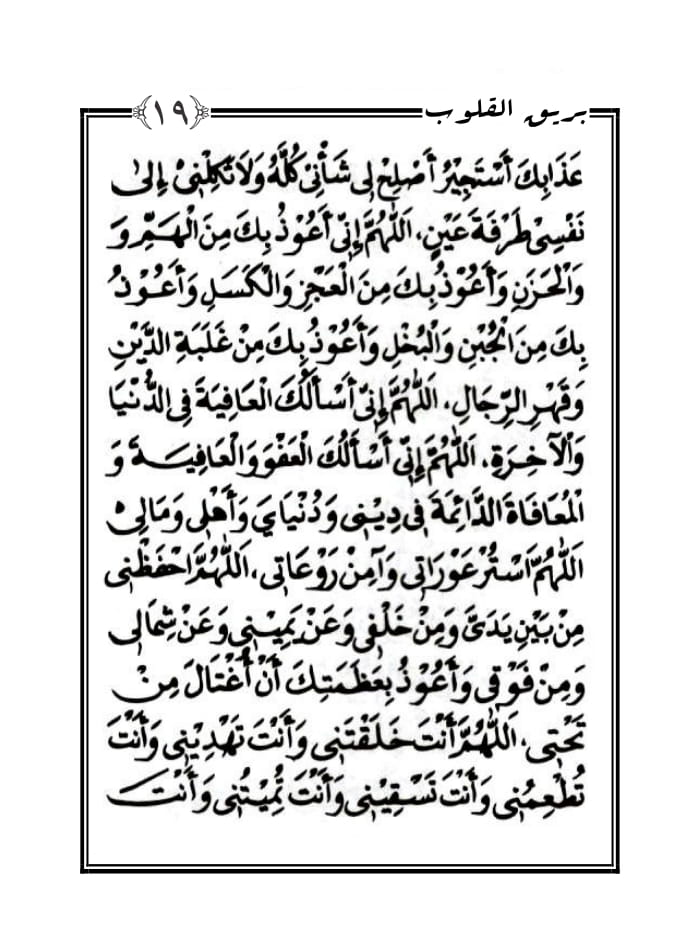 بريق القلوب
﴿١٩﴾
عَذَابِكَ أَسْتَجِيْرُ أَصْلِحْ لِى شَأْنِىْ كُلَّهُ وَلَا تَكِلْنِىْ إِلىٰ
نَفْسِىْ طَرْفَةَ عَيْنٍ، اَللّٰهُمَّ إِنِّى أَعُوْذُ بِكَ مِنَ الْهَمِّ وَ
وَالْحَزَنِ وَأَعُوْذُ بِكَ مِنَ الْعَجْزِ وَالْكَسَلِ وَأَعُوْذُ
بِكَ مِنَ الْجُبْنِ وَالْبُخْلِ وَأَعُوْذُ بِكَ مِنْ غَلَبَةِ الدَّيْنِ
وَقَهْرِ الرِّجَالِ، اَللّٰهُمَّ إِنِّىْ أَسْأَلُكَ الْعَافِيَةَ فِى الدُّنْيَا
وَالْآخِرَةِ، اَللّٰهُمَّ إِنِّى أَسْأَلُكَ الْعَفْوَ وَالْعَافِيَةَ وَ
الْمُعَافَاةَ الدَّائِمَةَ فِى دِيْنِى وَدُنْيَايَ وَأَهْلِى وَمَالِىْ
اَللّٰهُمَّ اسْتُرْ عَوْرَاتِى وَآمِنْ رَوْعَاتِى، اَللّٰهُمَّ احْفَظْنِى
مِنْ بَيْنِ يَدَىَّ وَمِنْ خَلْفِى وَعَنْ يَمِيْنِى وَعَنْ شِمَالِى
وَمِنْ فَوْقِى وَأَعُوْذُ بِعَظَمَتِكَ أَنْ أُغْتَالَ مِنْ
تَحْتِى، اَللّٰهُمَّ أَنْتَ خَلَقْتَنِى وَأَنْتَ تَهْدِيْنِى وَأَنْتَ
تُطْعِمُنِى وَأَنْتَ تَسْقِيْنِى وَأَنْتَ تُمِيْتُنِى وَأَنْتَ